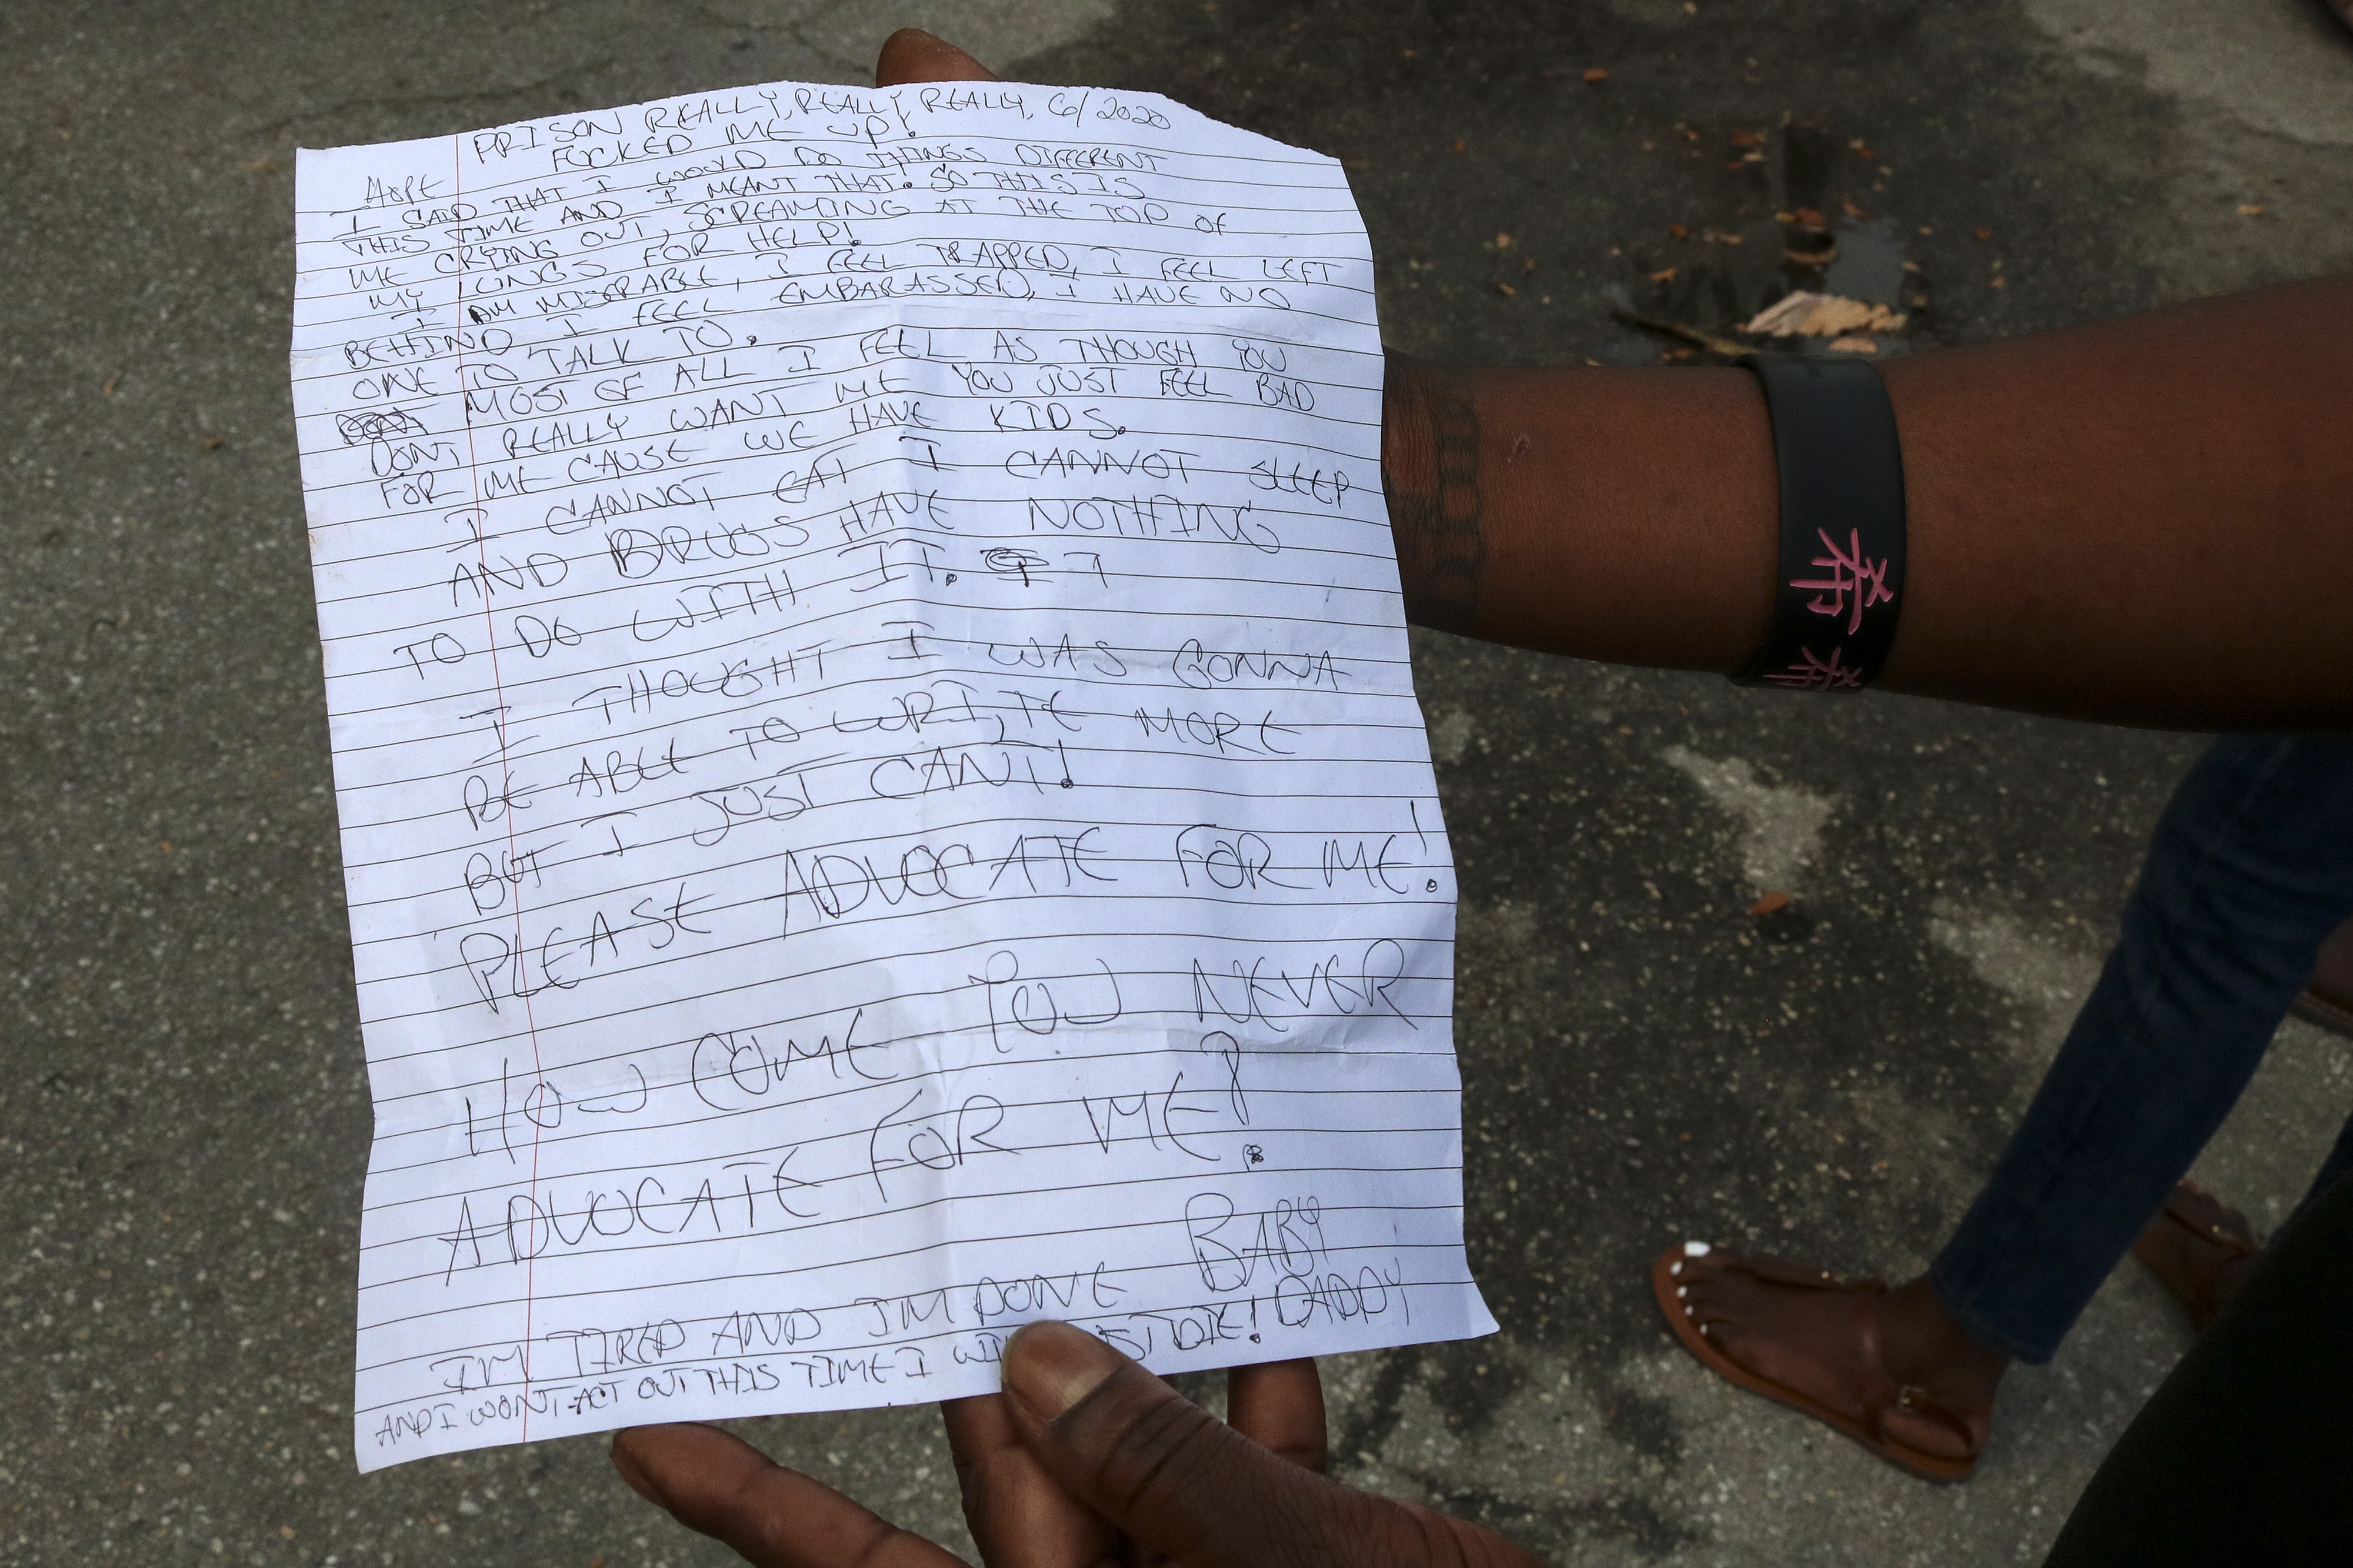 PRISON REALLY, REALLY, REALLY, 6/2020
FUCKED ME UP!
Hope
I SAID THAT I WOULD DO THINGS DIFFERENT
THIS TIME AND I MEANT THAT. SO THIS IS
ME CRYING OUT, SCREAMING AT THE TOP OF
MY LUNGS FOR HELP!
I AM MISERABLE, I FEEL TRAPPED, I FEEL LEFT
BEHIND I FEEL EMBARASSED, I HAVE NO
ONE TO TALK TO.
MOST OF ALL I FEEL AS THOUGH YOU
DONT REALLY WANT ME YOU JUST FEEL BAD
FOR ME CAUSE WE HAVE KIDS.
I CANNOT EAT I CANNOT SLEEP
AND DRUGS HAVE NOTHING
TO DO WITH IT.
I THOUGHT I WAS GONNA
BE ABLE TO WRITE MORE
BUT I JUST CANT!
PLEASE ADVOCATE FOR ME!
HOW COME YOU NEVER
ADVOCATE FOR ME?
BABY
DADDY
IM TIRED AND IM DONE
AND I WONT ACT OUT THIS TIME I DIE!
希
希